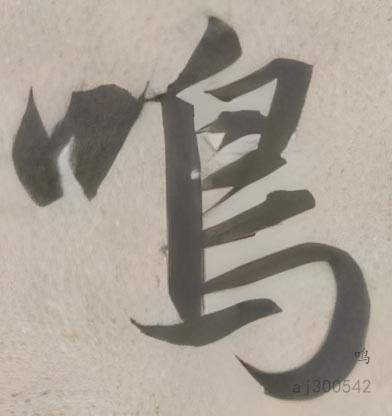 鳴
鸣
aj300542